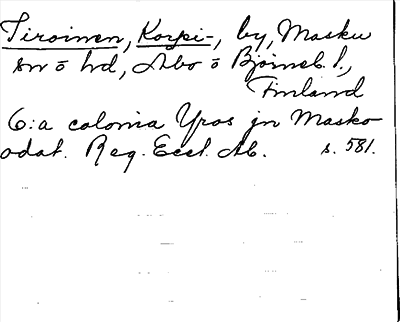 Tiroinen, Korpi-, by, Masku
sn o hd, Åbo o Björneb. l.,
Finland
6:a colonia Yros jn Masko
odat. Reg. Eccl. Ab. s. 581.